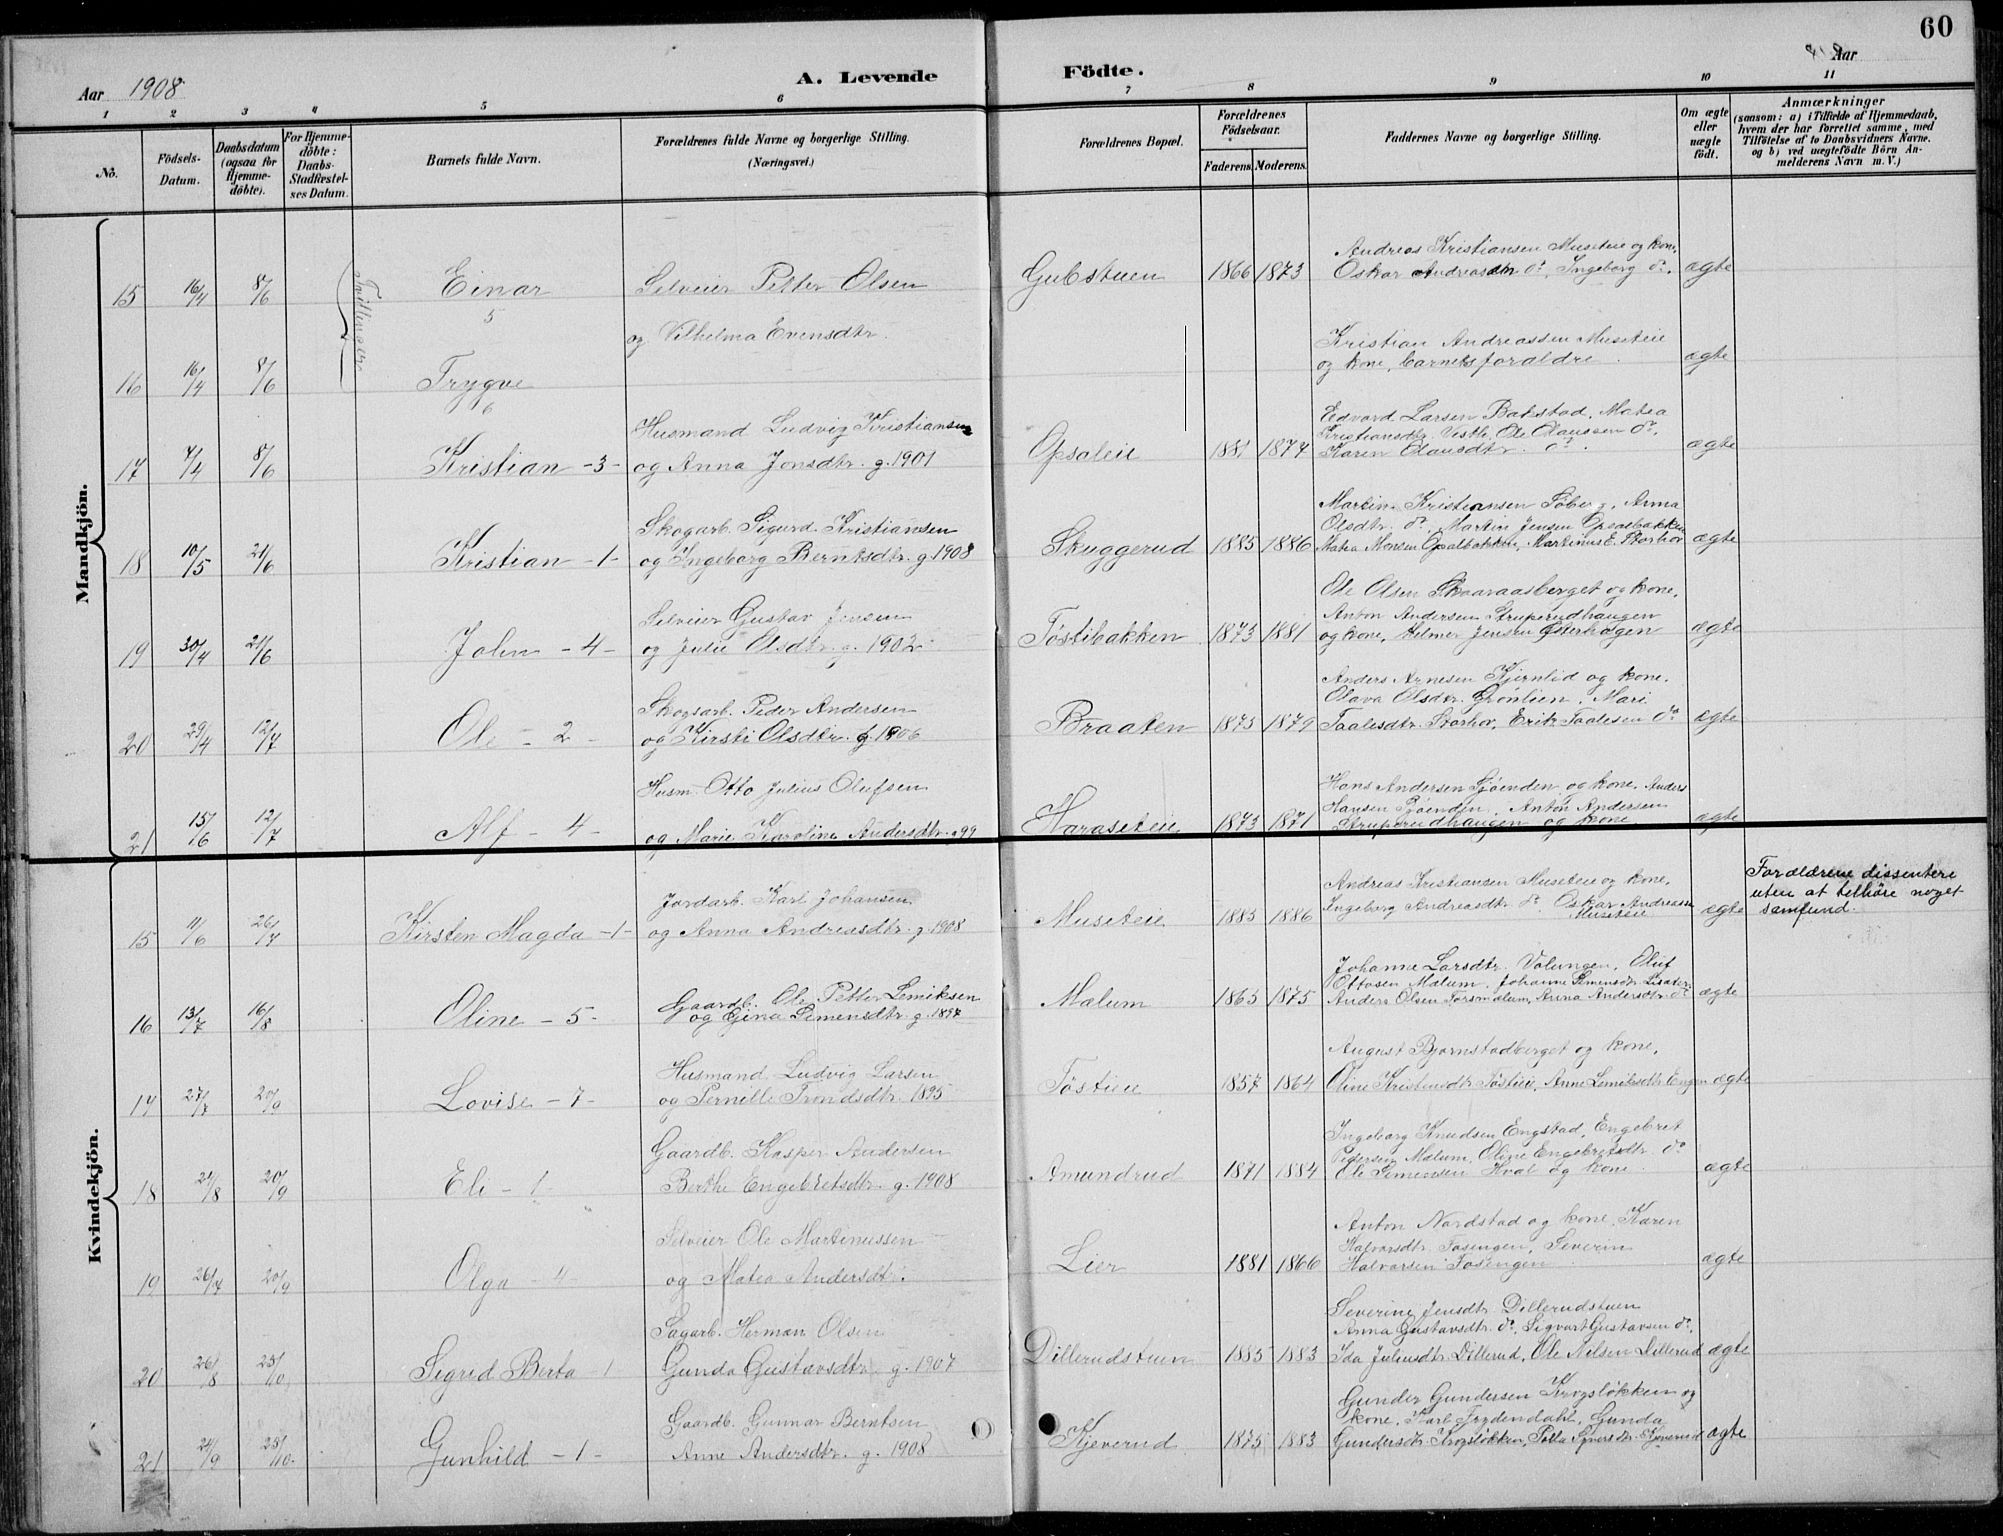 60
Aar 1908
A. Levende Födte.
Aar
1 2 3 4 5 6 7 8 9 10 11
No.
Födsels-Datum.
Daabsdatum (ogsaa for Hjemmedöbte).
For Hjemmedöbte: Daabs-Stadfæstelses Datum.
Barnets fulde Navn.
Forældrenes fulde Navne og borgerlige Stilling.
(Næringsvei.)
Forældrenes Bopæl.
Forældrenes Födselsaar.
Faderens. Moderens.
Faddernes Navne og borgerlige Stilling.
Om ægte eller uægte födt.
Anmærkninger
(saasom: a) i Tilfælde af Hjemmedaab, hvem der har forrettet samme, med Tilföielse af to Daabsvidners Navne. og b) ved uægtefödte Börn Anmelderens Navn m. V.)
Mandkjön.
Tvillinger
15 16/4 8/6 Einar 5
Selveier Petter Olsen
og Vilhelma Evensdtr.
Gubstuen 1866 1873
Andreas Kristiansen Museteie og kone,
Oskar Andreassen do, Ingeborg do. ægte
16 16/4 8/6 Trygve 6
Kristian Andreassen Museteie
og kone, barnets forældre. ægte
17 7/4 8/6 Kristian - 3 -
Husmand Ludvig Kristiansen
og Anna Jonsdtr. g. 1901
Opsaleie 1881 1874
Edvard Larsen Bakstad, Matea
Kristiansdtr. Vestb. Ole Olaussen do,
Karen Olausdtr. do. ægte
18 10/5 21/6 Kristian - 1 -
Skogarb. Sigurd Kristiansen
og Ingeborg Berntsdtr. g. 1908
Skuggerud 1885 1886
Martin Kristiansen Söberg, Anna
Olsdtr. do. Martin Jensen Opsalbakken
Matea Monsen Opsalbakken, Martinus E. Storhov ægte
19 30/4 21/6 John - 4 -
Selveier Gustav Jensen
og Julie Olsdtr. g. 1902
Töstibakken 1873 1881
Ole Olsen Skaaraasberget og kone,
Anton Andersen Struperudhaugen
og kone, Helmer Jensen Österhagen ægte
20 29/4 12/7 Ole - 2 -
Skogsarb. Peder Andersen
og Kirsti Olsdtr. g. 1906
Braaten 1875 1879
Anders Arnesen Kjernlid og kone.
Olava Olsdtr. Grönlien, Mari
Taalesdtr. Storhov, Erik Taalesen do ægte
21 15/6 12/7 Alf - 4 -
Husm. Otto Julius Olufsen
og Marie Karoline Andersdtr. g 99
Haraseteie 1873 1871
Hans Andersen Sjöenden og kone, Anders
Hansen Sjöenden, Anton Andersen
Struperudhaugen og kone ægte
Kvindekjön.
15 11/6 26/7 Kirsten Magda - 1 -
Jordarb. Karl Johansen
og Anna Andreasdtr. g. 1908
Museteie 1883 1886
Andreas Kristiansen Museteie og kone,
Ingeborg Andreasdtr. do. Oskar Andreassen
Museteie ægte
Forældrene dissentere
uten at tilhöre noget
samfund.
16 13/7 16/8 Oline - 5 -
Gaardb. Ole Petter Lemiksen
og Gina Simensdtr. g. 1897
Malum 1865 1875
Johanne Larsdtr. Volungen, Oluf
Ottosen Malum, Johanne Simensdtr.
Anders Olsen Forsmalum, Anna Andersdtr. do ægte
17 27/7 20/9 Lovise - 7 -
Husmand Ludvig Larsen
og Pernille Trondsdtr. 1895
Töstieie 1857 1864
August Bjornstadberget og kone,
Oline Kristensdtr. Töstieie, Anne Lemiksdtr. Engen ægte
18 21/8 20/9 Eli - 1 -
Gaardb. Kasper Andersen
Berthe Engebretsdtr. g. 1908
Amundrud 1871 1884
Ingeborg Knudsen Engstad, Engebret
Pedersen Malum, Oline Engebretsdtr. do
Ole Simensen Hval og kone. ægte
19 26/7 20/9 Olga - 4 -
Selveier Ole Martinussen
og Matea Andersdtr.
Lier 1881 1866
Anton Nordstad og kone, Karen
Halvorsdtr. Fosengen, Severin
Halvorsen Fosengen ægte
20 26/8 25/10 Sigrid Berta - 1
Sagarb. Herman Olsen
Gunda Gustavsdtr. g. 1907
Dillerudstuen 1885 1883
Severine Jensdtr. Dillerudstuen
Anna Gustavsdtr. do, Sigvart Gustavsen do,
Ida Juliusdtr. Dillerud, Ole Nilsen Dillerud ægte
21 24/9 25/10 Gunhild - 1 -
Gaardb. Gunnar Berntsen
Anne Andersdtr. g. 1908
Kjeverud 1875 1883
Gunder Gundersen Krogslökken og
kone, Karl Frydendahl, Gunda
Gundersdtr. Krogslökken, Kjeverud ægte